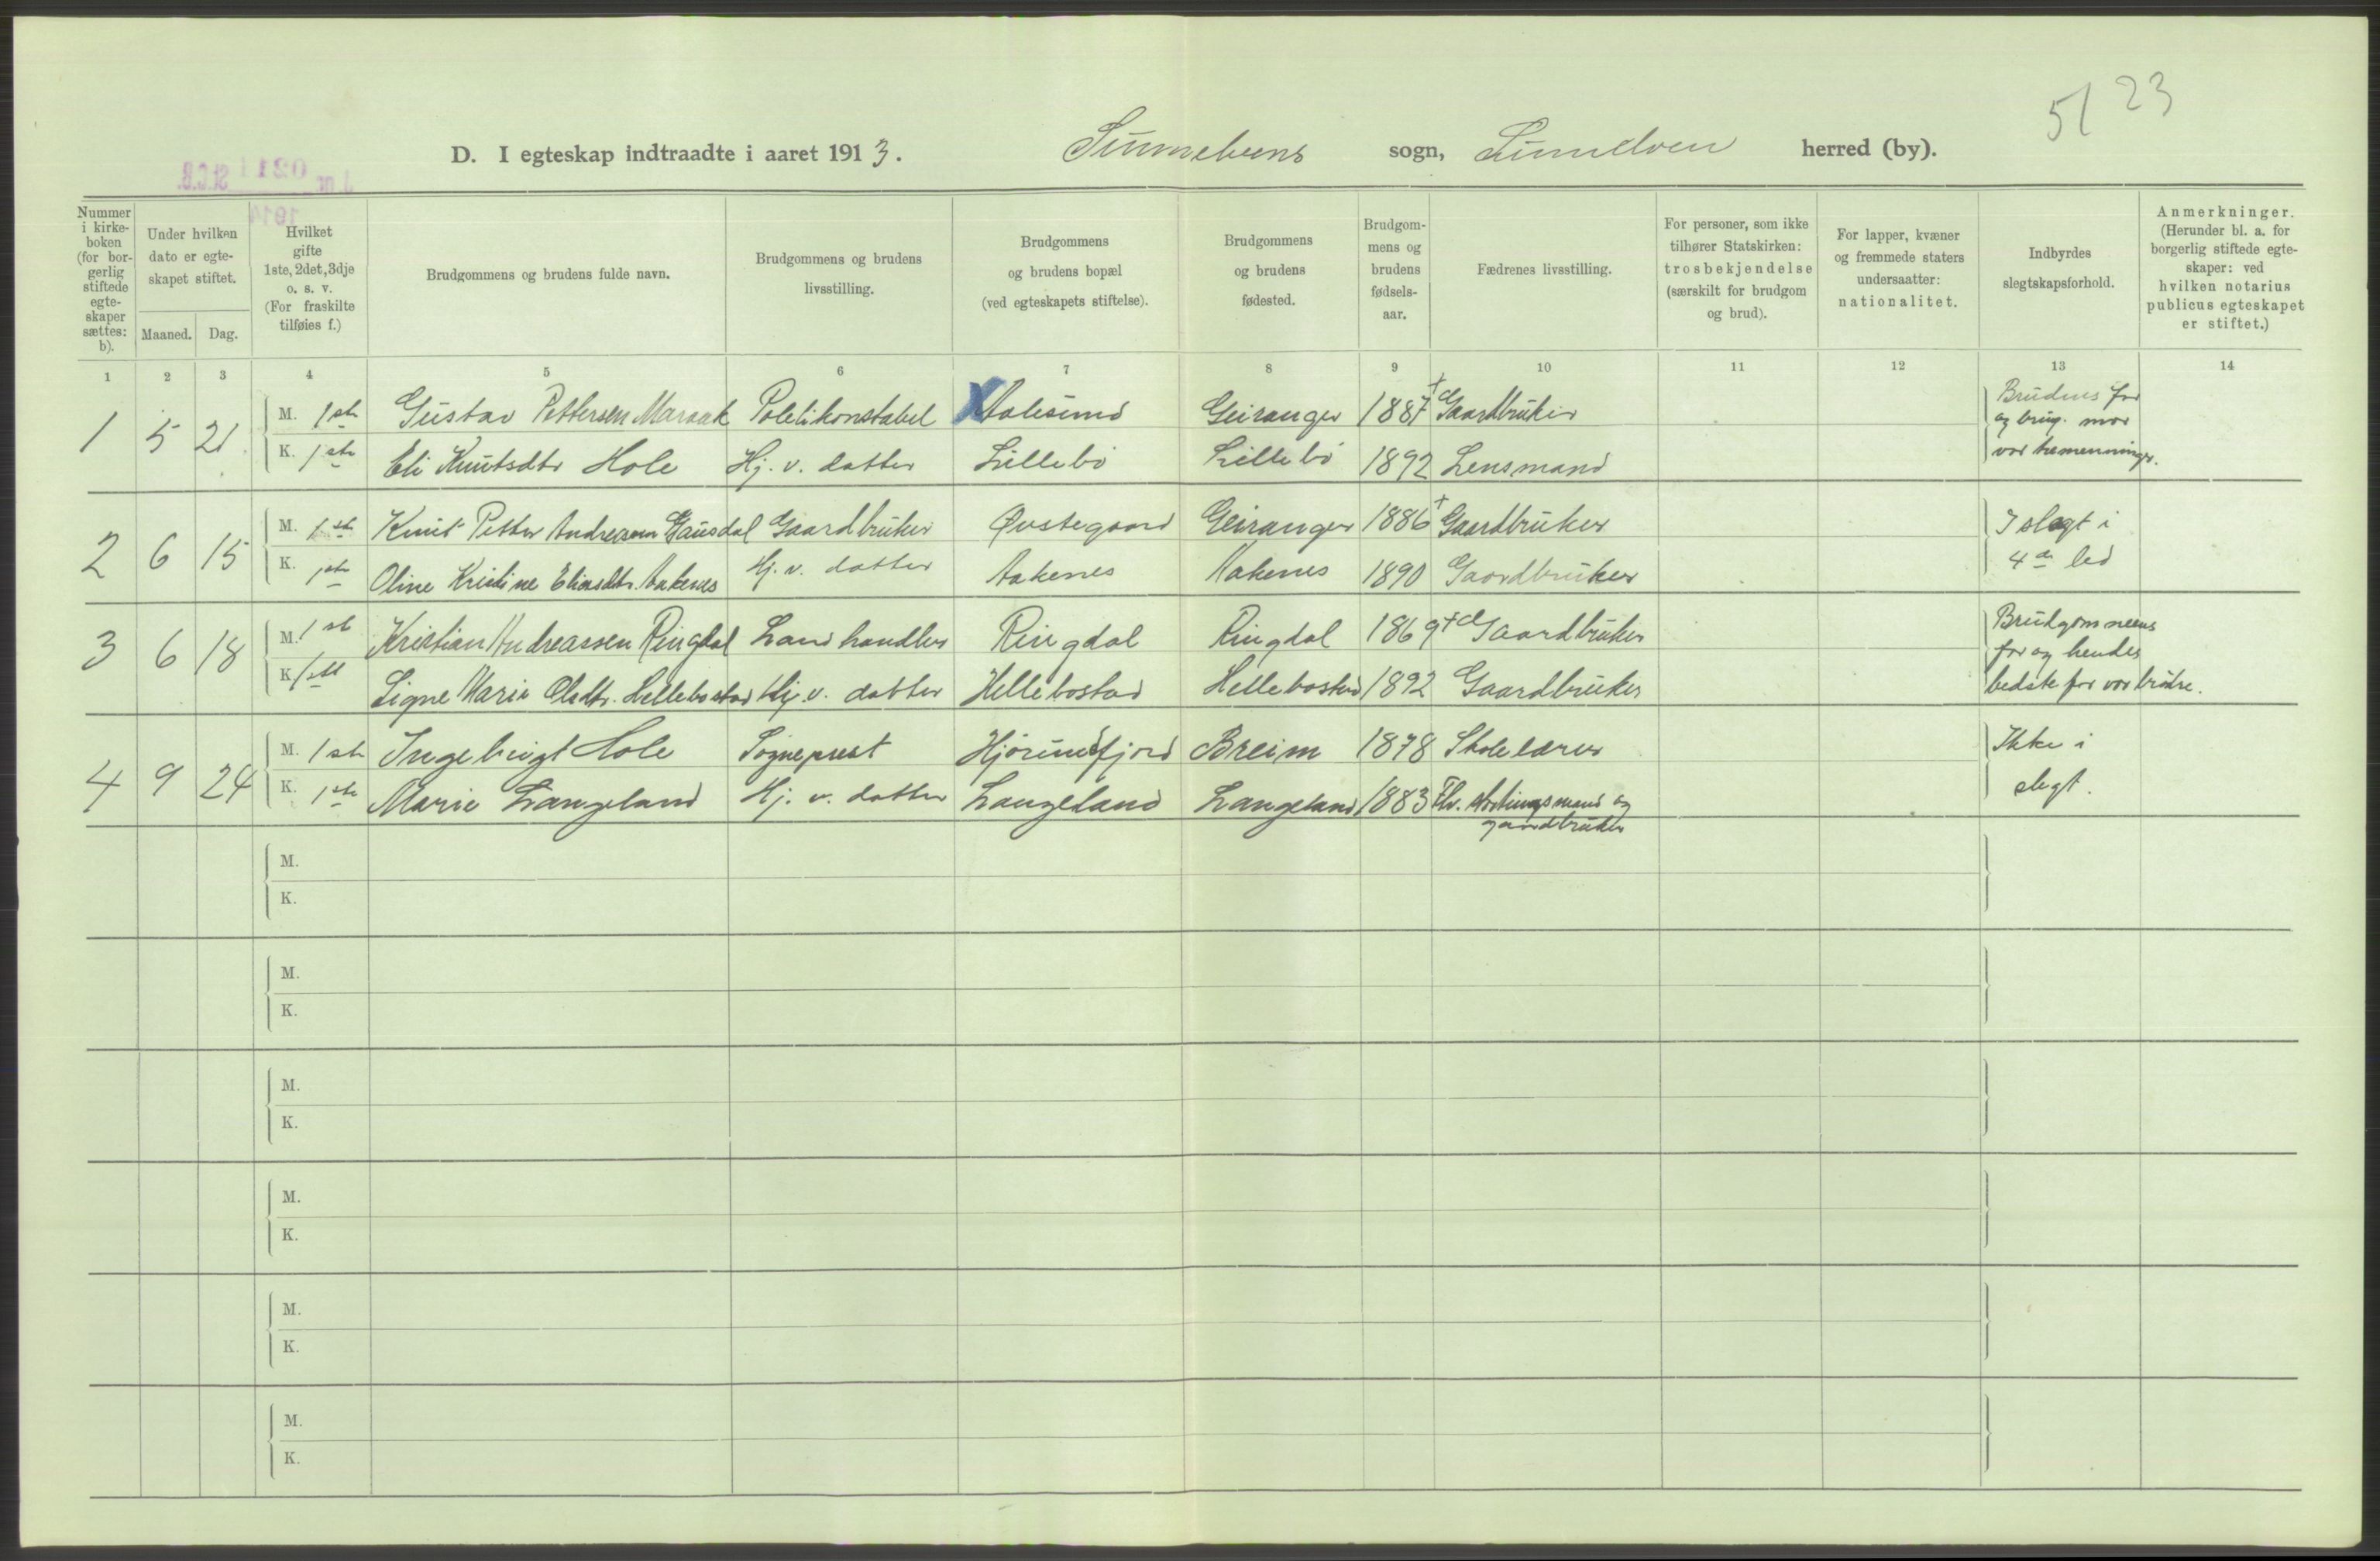 51 23
D. I egteskap indtraadte i aaret 1913. Sunnelvens sogn, Sunnelven herred (by).
J. nr. 0211 St.C.B.
1914
Nummer i kirkeboken (for borgerlig stiftede egteskaper sættes: b).
Under hvilken dato er egteskapet stiftet.
Maaned. Dag.
Hvilket gifte 1ste, 2det, 3dje o. s. v. (For fraskilte tilføies f.)
Brudgommens og brudens fulde navn.
Brudgommens og brudens livsstilling.
Brudgommens og brudens bopæl (ved egteskapets stiftelse).
Brudgommens og brudens fødested.
Brudgommens og brudens fødselsaar.
Fædrenes livsstilling.
For personer, som ikke tilhører Statskirken: trosbekjendelse (særskilt for brudgom og brud).
For lapper, kvæner og fremmede staters undersaatter: nationalitet.
Indbyrdes slegtskapsforhold.
Anmerkninger. (Herunder bl. a. for borgerlig stiftede egteskaper: ved hvilken notarius publicus egteskapet er stiftet.)
1 2 3 4 5 6 7 8 9 10 11 12 13 14
1 5 21 M. 1ste Gustav Pettersen Maraak Politikonstabel X Aalesund Geiranger 1887 + Gaardbruker
K. 1ste Eli Knutsdtr Hole Hj. v. datter Lillebø Lillebø 1892 Lensmand
Brudens far
og brug. mor
var tremenninger.
2 6 15 M. 1ste Knut Petter Andreassen Gausdal Gaardbruker Øvstegaard Geiranger 1886 + Gaardbruker
K. 1ste Oline Kristine Eliasdtr. Aakenes Hj. v. datter Aakenes Aakenes 1890 Gaardbruker
I slegt i
4de led
3 6 18 M. 1ste Kristian Andreassen Ringdal Landhandler Ringdal Ringdal 1869 + Gaardbruker
K. 1ste Signe Marie Olsdtr. Hellebostad Hj. v. datter Hellebostad Hellebostad 1892 Gaardbruker
Brudgommens
far og hendes
bedstefar var brødre.
4 9 24 M. 1ste Ingebrigt Hole Sogneprest Hjørundfjord Breim 1878 Skolelærer
K. 1ste Marie Langeland Hj. v. datter Langeland Langeland 1883 Fhv. stortingsmand og
gaardbruker
Ikke i
slegt.
M.
K.
M.
K.
M.
K.
M.
K.
M.
K.
M.
K.